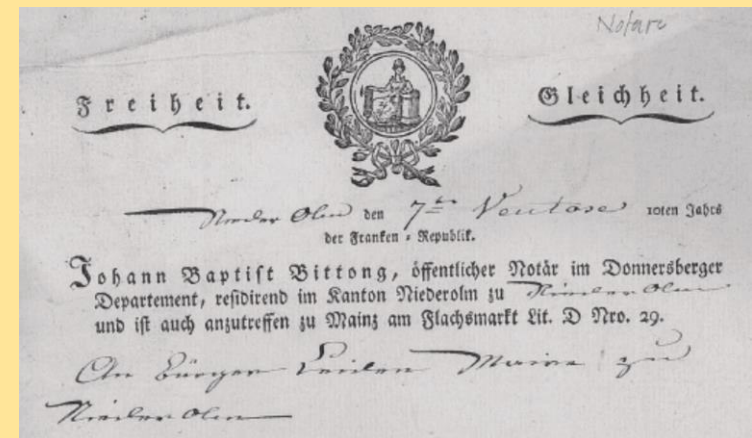 Notare
Freiheit. Gleichheit.
Nieder Olm den 7ten Ventose 10ten Jahrs
der Franken-Republik.
Johann Baptist Bittong, öffentlicher Notär im Donnersberger
Departement, residirend im Kanton Niederolm zu Nieder Olm
und ist auch anzutreffen zu Mainz am Flachsmarkt Lit. D Nro. 29.
An Bürger Maire zu
Nieder Olm